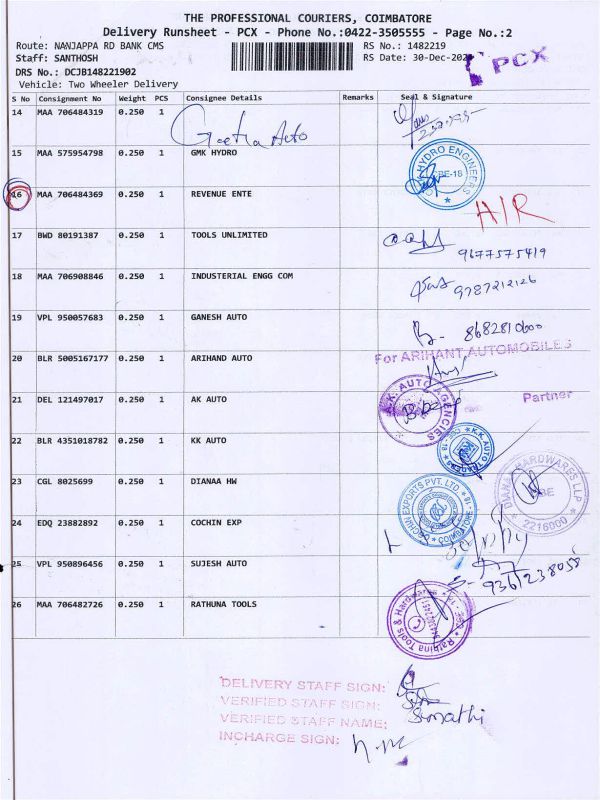 THE PROFESSIONAL COURIERS, COIMBATORE
Delivery Runsheet - PCX - Phone No.:0422-3505555 - Page No.:2
Route: NANJAPPA RD BANK CMS
RS No.: 1482219
Staff: SANTHOSH
RS Date: 30-Dec-20
PCX
DRS No.: DCJB148221902
Vehicle: Two Wheeler Delivery
S No Consignment No Weight PCS Consignee Details Remarks Seal & Signature
14 MAA 706484319 0.250 1 Geetha Auto
15 MAA 575954798 0.250 1 GMK HYDRO
HYDRO ENGINEERS
CBE-18
16 MAA 706484369 0.250 1 REVENUE ENTE
17 BWD 80191387 0.250 1 TOOLS UNLIMITED
9677575419
18 MAA 706908846 0.250 1 INDUSTERIAL ENGG COM
9787212126
19 VPL 950057683 0.250 1 GANESH AUTO
8682810600
20 BLR 5005167177 0.250 1 ARIHAND AUTO
For ARIHANT AUTOMOBILES
Partner
21 DEL 121497017 0.250 1 AK AUTO
A.K. AUTO AGENCIES
22 BLR 4351018782 0.250 1 KK AUTO
23 CGL 8025699 0.250 1 DIANAA HW
DIANAA HARDWARES LLP
CBE
2216000
24 EDQ 23882892 0.250 1 COCHIN EXP
COCHIN EXPORTS PVT. LTD
COIMBATORE - 18
25 VPL 950896456 0.250 1 SUJESH AUTO
9361238058
26 MAA 706482726 0.250 1 RATHUNA TOOLS
Rathna Tools & Hardwares
CBE - 18
DELIVERY STAFF SIGN:
VERIFIED STAFF SIGN:
VERIFIED STAFF NAME: Sumathi
INCHARGE SIGN: